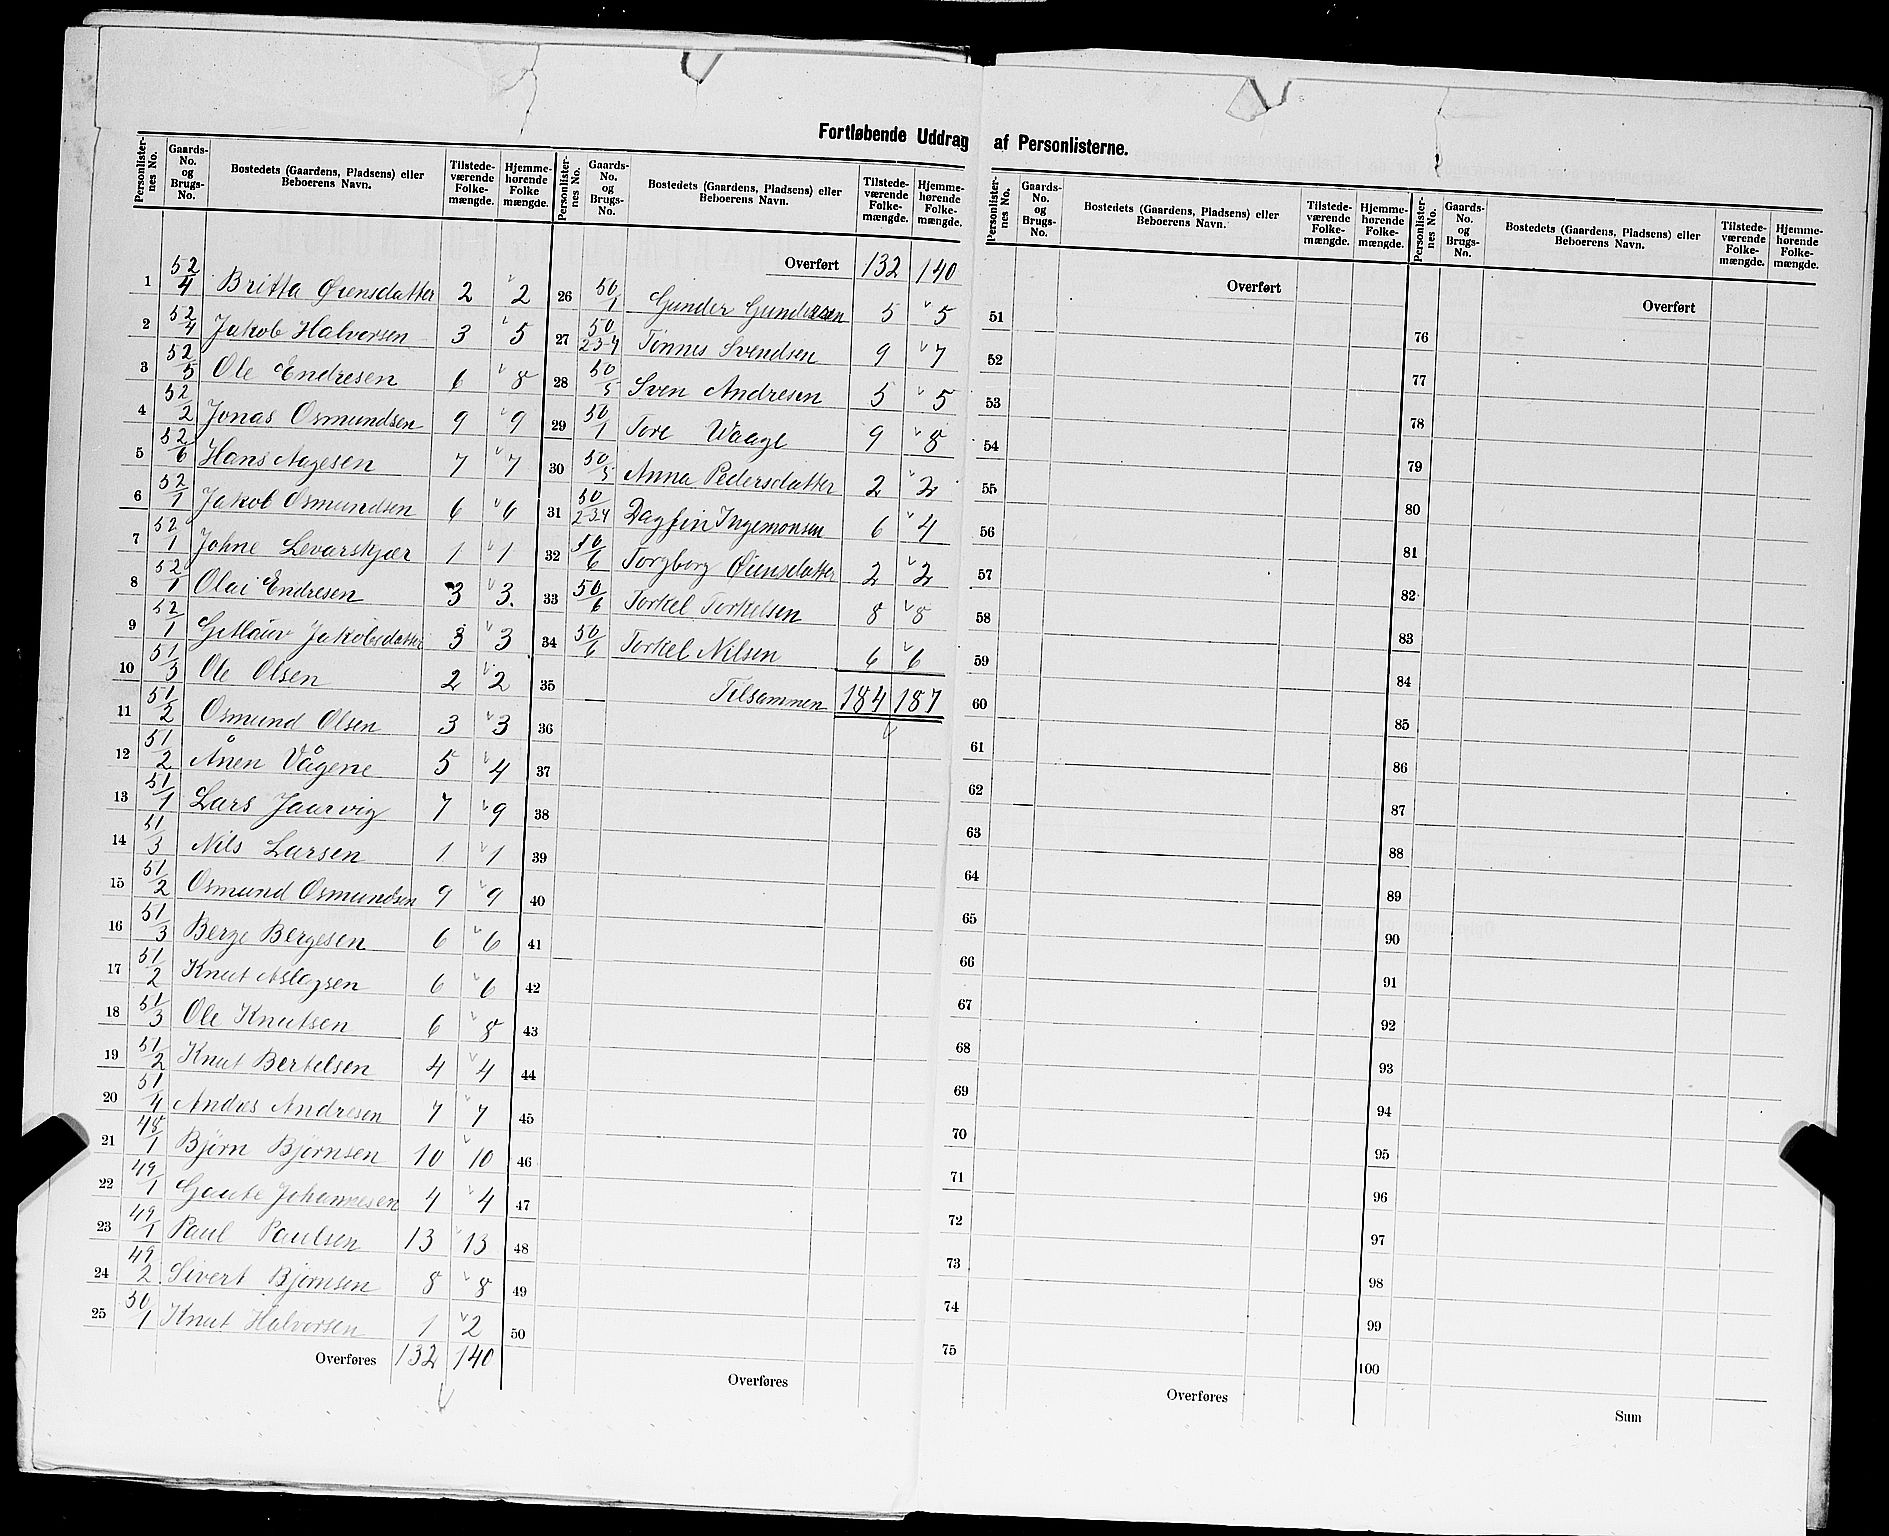 Fortløbende Uddrag af Personlisterne.
Personlisternes No. | Gaards-No. og Brugs-No. | Bostedets (Gaardens, Pladsens) eller Beboerens Navn. | Tilstedeværende Folkemængde. | Hjemmehørende Folkemængde.
1 52/4 Britta Øiensdatter 2 2
2 52/4 Jakob Halvorsen 3 5
3 52/5 Ole Endresen 6 8
4 52/2 Jonas Osmundsen 9 9
5 52/6 Hans Aagesen 7 7
6 52/1 Jakob Osmundsen 6 6
7 52/1 Johne Levarskjær 1 1
8 52/1 Olai Endresen 3 3.
9 52/1 Jakobsdatter 3 3
10 51/3 Ole Olsen 2 2
11 51/2 Osmund Olsen 3 3
12 51/2 Ånen Vågene 5 4
13 51/1 Lars Jaarvig 7 9
14 51/3 Nils Larsen 1 1
15 51/2 Osmund Osmundsen 9 9
16 51/3 Berge Bergesen 6 6
17 51/2 Knut Aslagsen 6 6
18 51/3 Ole Knutsen 6 8
19 51/2 Knut Bertelsen 4 4
20 51/4 Andras Andresen 7 7
21 48/1 Bjørn Bjørnsen 10 10
22 49/1 Gaute Johannesen 4 4
23 49/1 Paul Paulsen 13 13
24 49/2 Sivert Bjørnsen 8 8
25 50/1 Knut Halvorsen 1 2
Overføres 132 140
Personlisternes No. | Gaards-No. og Brugs-No. | Bostedets (Gaardens, Pladsens) eller Beboerens Navn. | Tilstedeværende Folkemængde. | Hjemmehørende Folkemængde.
Overført 132 140
26 50/1 Gunder Gundersen 5 5
27 50/234 Tønnes Svendsen 9 7
28 50/5 Sven Andresen 5 5
29 50/1 Tore Waage 9 8
30 50/5 Anna Pedersdatter 2 2
31 50/234 Dagfin Ingemonsen 6 4
32 50/6 Torgborg Øiensdatter 2 2
33 50/6 Torkel Torkelsen 8 8
34 50/6 Torkel Nilsen 6 6
35 Tilsammen 184 187
36
37
38
39
40
41
42
43
44
45
46
47
48
49
50
Overføres
Personlisternes No. | Gaards-No. og Brugs-No. | Bostedets (Gaardens, Pladsens) eller Beboerens Navn. | Tilstedeværende Folkemængde. | Hjemmehørende Folkemængde.
Overført
51
52
53
54
55
56
57
58
59
60
61
62
63
64
65
66
67
68
69
70
71
72
73
74
75
Overføres
Personlisternes No. | Gaards-No. og Brugs-No. | Bostedets (Gaardens, Pladsens) eller Beboerens Navn. | Tilstedeværende Folkemængde. | Hjemmehørende Folkemængde.
Overført
76
77
78
79
80
81
82
83
84
85
86
87
88
89
90
91
92
93
94
95
96
97
98
99
100
Sum